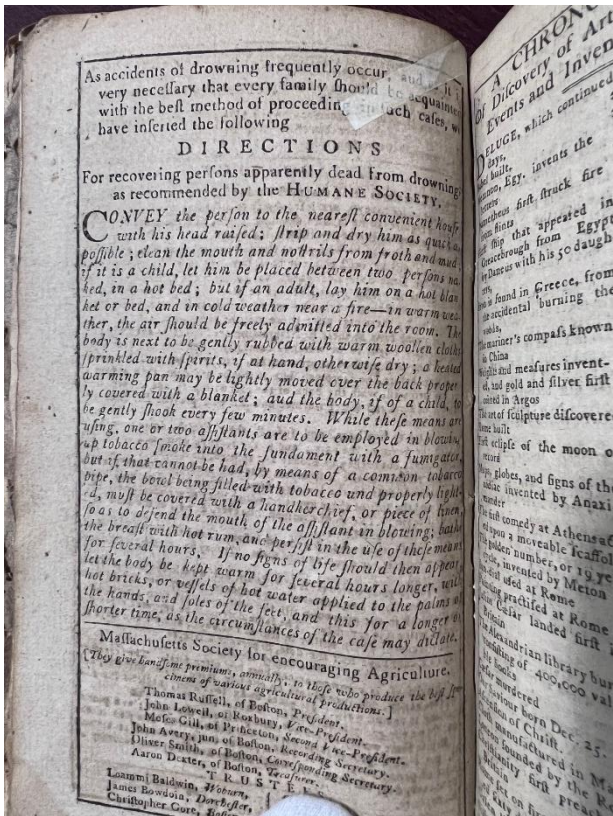 As accidents of drowning frequently occur, and it is
very neceſſary that every family ſhould be acquainted
with the beſt method of proceeding in ſuch caſes, we
have inſerted the following
DIRECTIONS
For recovering perſons apparently dead from drowning,
as recommended by the HUMANE SOCIETY.
CONVEY the perſon to the neareſt convenient houſe
with his head raiſed; ſtrip and dry him as quick as
poſſible; clean the mouth and noſtrils from froth and mud;
if it is a child, let him be placed between two perſons na-
ked, in a hot bed; but if an adult, lay him on a hot blan
ket or bed, and in cold weather near a fire—in warm wea-
ther, the air ſhould be freely admitted into the room. The
body is next to be gently rubbed with warm woollen cloths
ſprinkled with ſpirits, if at hand, otherwiſe dry; a heated
warming pan may be lightly moved over the back proper
ly covered with a blanket; aud the body, if of a child, to
be gently ſhook every few minutes. While theſe means are
uſing, one or two aſſiſtants are to be employed in blowing
up tobacco ſmoke into the fundament with a fumigator,
but if that cannot be had, by means of a common tobacco
pipe, the bowl being filled with tobacco und properly light-
ed, muſt be covered with a handkerchief, or piece of linen,
ſo as to defend the mouth of the aſſiſtant in blowing; bathe
the breaſt with hot rum, and perſiſt in the uſe of theſe means
for ſeveral hours. If no ſigns of life ſhould then appear,
let the body be kept warm for ſeveral hours longer, with
hot bricks, or veſſels of hot water applied to the palms of
the hands, and ſoles of the feet, and this for a longer or
ſhorter time, as the circumſtances of the caſe may dictate.
Maſſachuſetts Society for encouraging Agriculture.
[They give handſome premiums, annually, to thoſe who produce the beſt ſpe-
cimens of various agricultural productions.]
Thomas Ruſſell, of Boſton, Preſident.
John Lowell, of Roxbury, Vice-Preſident.
Moſes Gill, of Princeton, Second Vice-Preſident.
John Avery, jun. of Boſton, Recording Secretary.
Oliver Smith, of Boſton, Correſponding Secretary.
Aaron Dexter, of Boſton, Treaſurer.
TRUSTEES
Loammi Baldwin, Woburn,
James Bowdoin, Dorcheſter,
Chriſtopher Gore, Boſton
A CHRONO
Of Diſcovery of Art
Events and Inven
DELUGE, which continued
days,
built,
Egy. invents the
letters
firſt ſtruck fire
from flints
ſhip that appeared in
from Egypt
by Danaus with his 50 daugh
is found in Greece, from
the accidental burning the
woods,
The mariner's compaſs known
in China
Weights and meaſures invent-
ed, and gold and ſilver firſt
coined in Argos
The art of ſculpture diſcovered
Rome built
Firſt eclipſe of the moon on
record
Maps, globes, and ſigns of the
zodiac invented by Anaxi
mander
The firſt comedy at Athens
upon a moveable ſcaffold
The golden number, or 19 ye
invented by Meton
firſt uſed at Rome
practiſed at Rome
Cæſar landed firſt
Britain
The Alexandrian library bur
conſiſting of 400,000 val
uable books
murdered
Saviour born Dec. 25.
of Chriſt.
manufactured in
founded by the
firſt preach